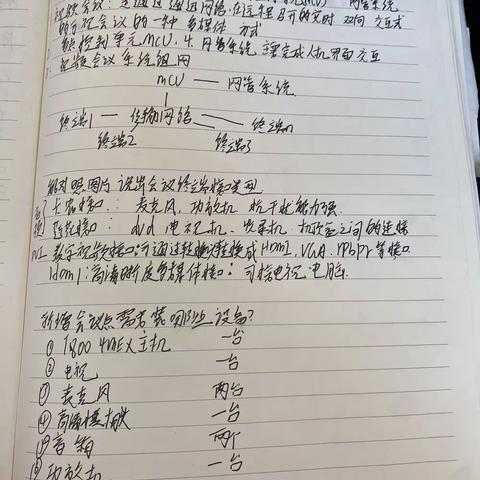 视频会议：是通过通迅网络,在远程召开的实时 双向 交互式
的可视会议的一种 多媒体 方式
控制单元MCU, 4.网管系统 主要完成人机界面交互
视频会议系统组网
MCU —— 网管系统
终端1 —— 传输网络 —— 终端n
终端2 终端3
能对照图片 说出会议终端接口使用
卡农接口：麦克风、功放机 抗干扰能力强.
接口： dvd 电视机、之间的连接
数字视频接口:可通过转换成HDMI、VGA、YPbPr等接口
Hdmi:高清晰度多媒体接口: 可接电视 电脑.
新增会议点需安装哪些设备?
① T800 4MEX主机 一台
② 电视 一台
③ 麦克风 两台
④ 高清摄像头 一台
⑤ 音箱 两个
⑥ 功放机 一台